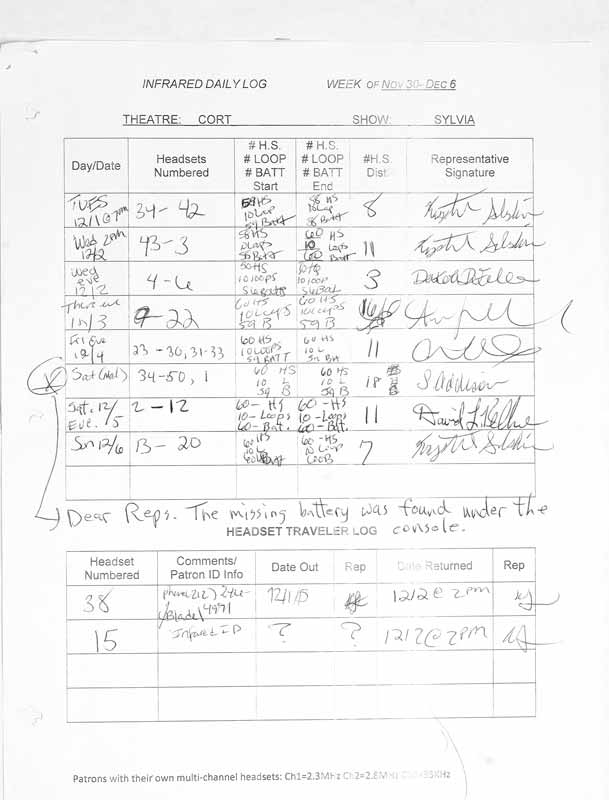 INFRARED DAILY LOG WEEK OF NOV 30- DEC 6
THEATRE: CORT SHOW: SYLVIA
Day/Date
Headsets Numbered
# H.S. # LOOP # BATT Start
# H.S. # LOOP # BATT End
#H.S. Dist.
Representative Signature
TUES 12/1 @ 7pm 34 - 42 59 HS 10 Loop 59 Batt 58 HS 10 Loop 58 Batt 8
Wed 2pm 12/2 43 - 3 58 HS 58 Batt 60 HS 10 Loops 60 Batt 11
Wed eve 12/2 4 - 6 10 loops 3
22 60 HS 10 Loops 59 B 60 HS 59 B
Fri Eve 12/4 23 - 30, 31-33 60 HS 10 LOOPS 59 BATT 60 HS 10 L 59 BA 11
Sat (Mat) 34-50, 1 60 HS 10 L 59 B 60 HS 10 L 59 B 18 S Addison
Sat. 12/5 Eve. 2 - 12 60 - HS 10 - Loops 60 - Batt. 60 - HS 10 - Loops 60 - Batt. 11 David L.
Sun 12/6 13 - 20 60 HS 10 L 60 Batt 60 - HS 10 Loop 60 B 7
Dear Reps. The missing battery was found under the console.
HEADSET TRAVELER LOG
Headset Numbered
Comments/ Patron ID Info
Date Out
Rep
Date Returned
Rep
38 Blade 4991 12/1/15 12/2 @ 2pm
15 Infrared ID ? ? 12/2 @ 2PM
Patrons with their own multi-channel headsets: Ch1=2.3MHz Ch2=2.8MHz